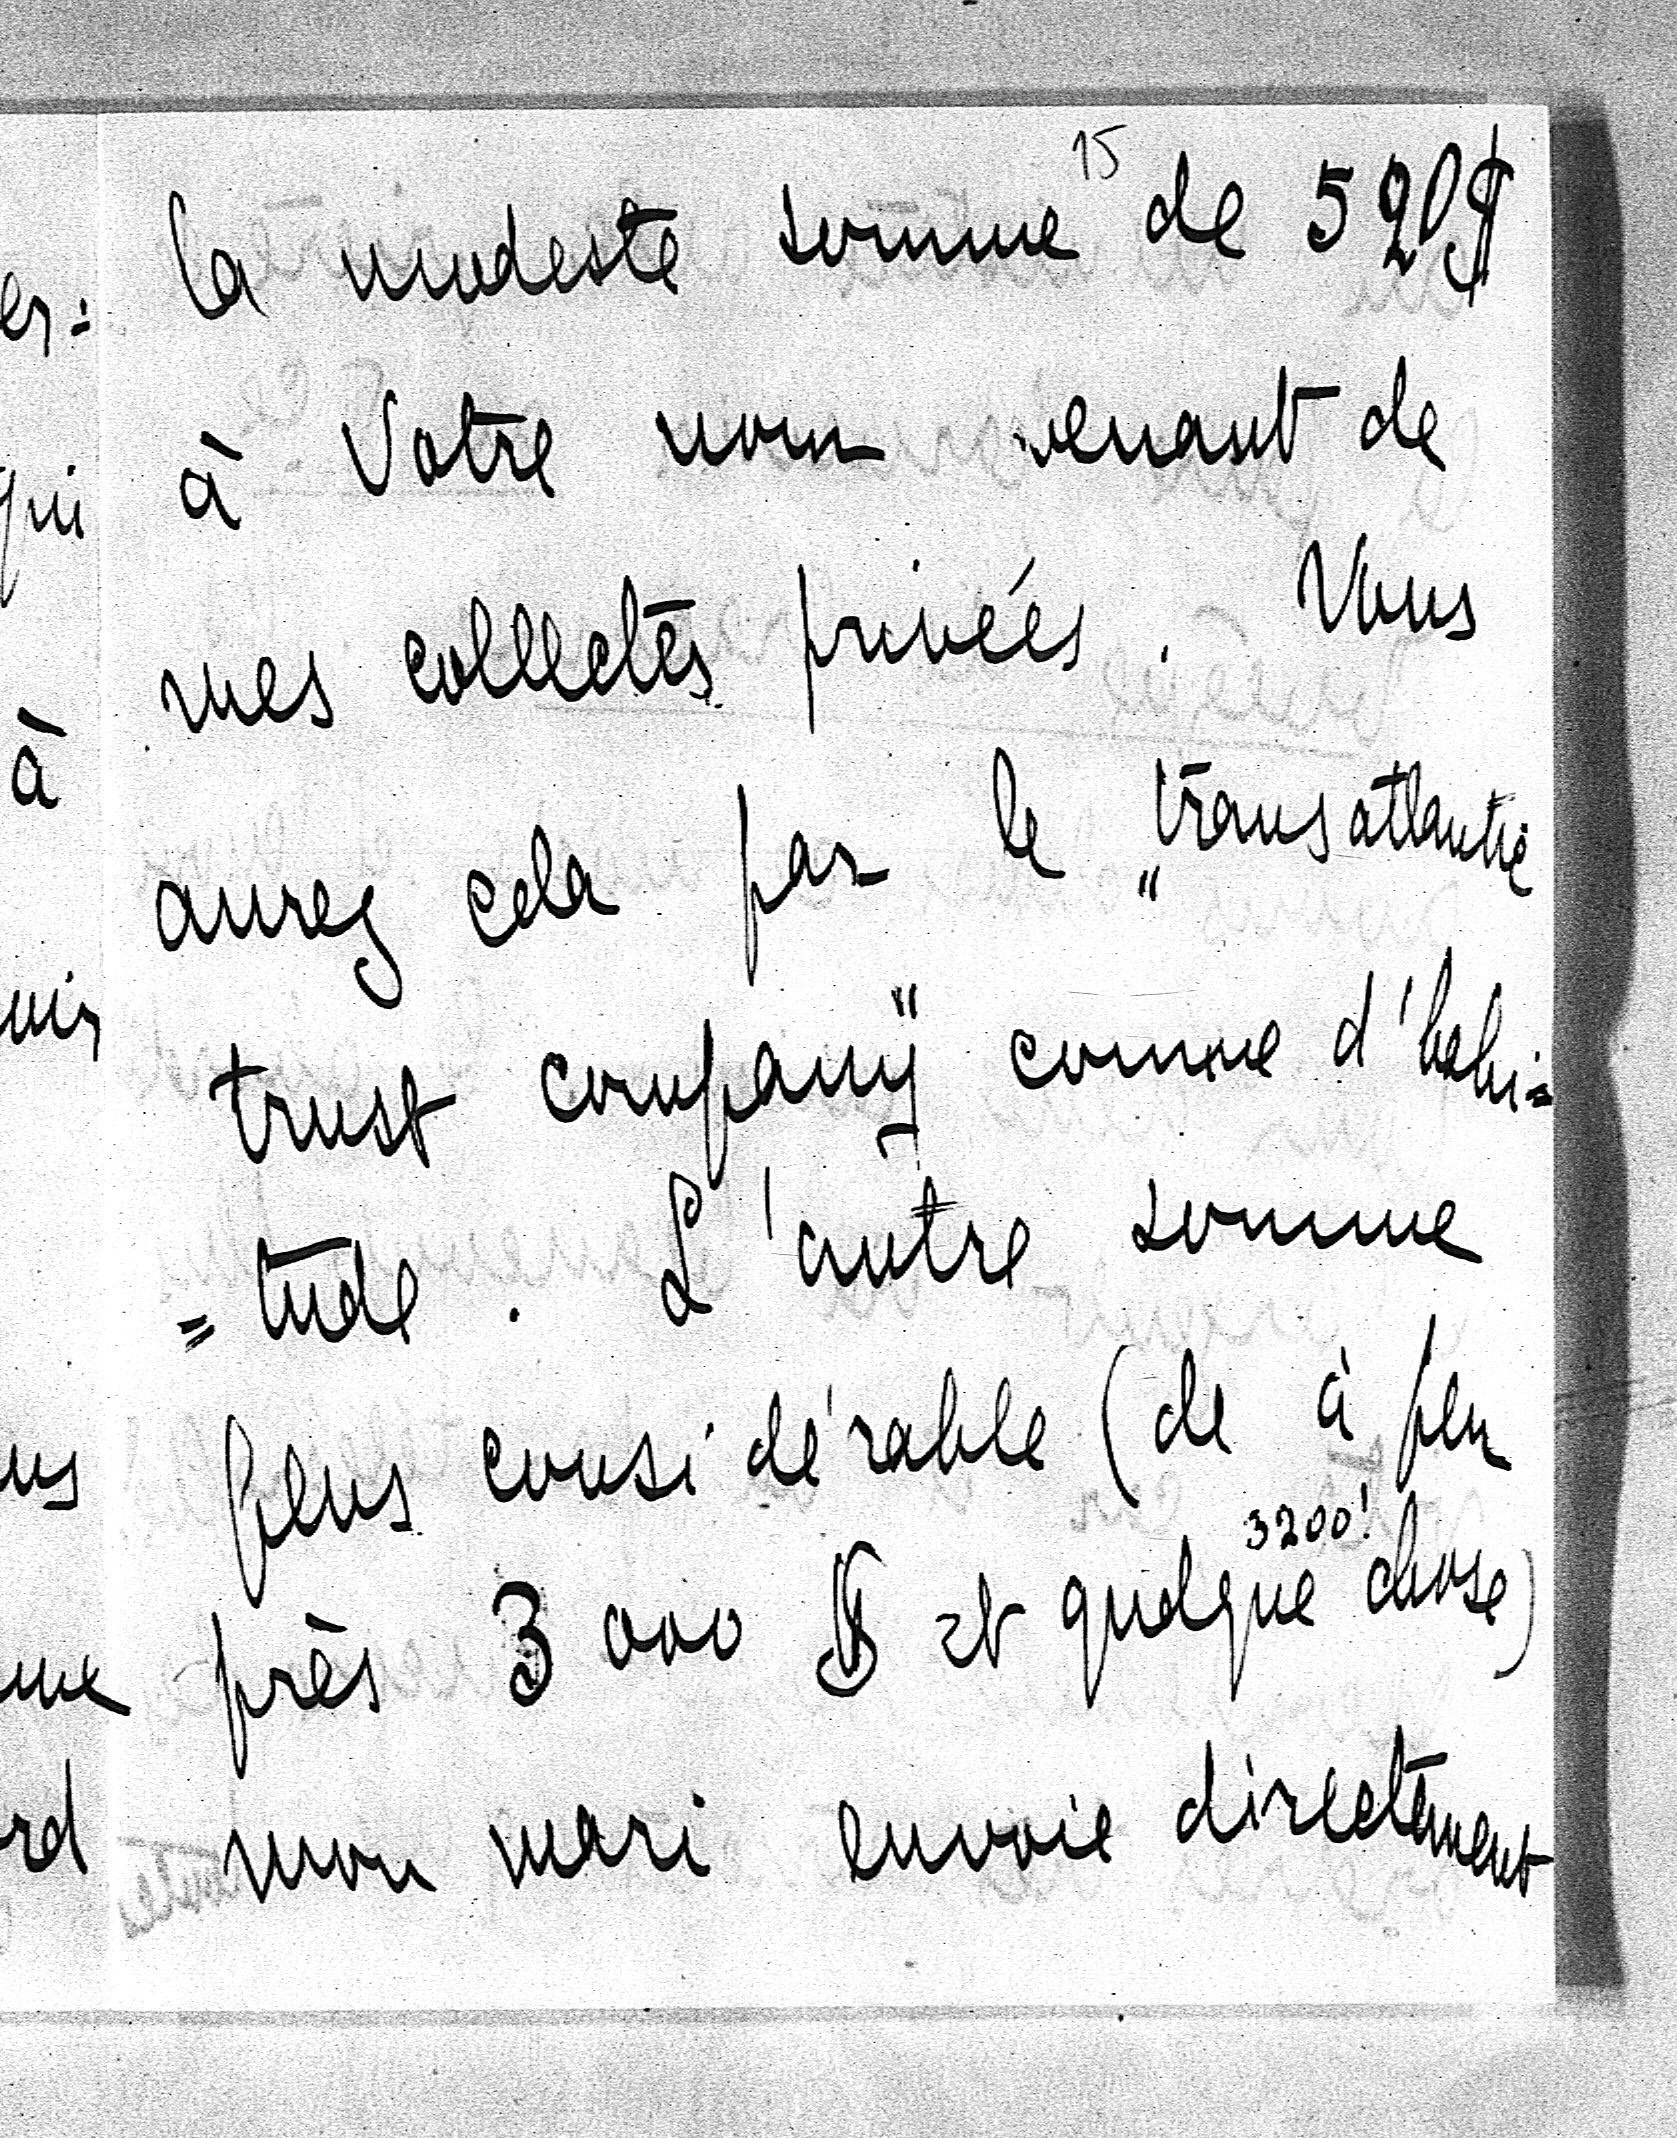 15
la modeste somme de 520$
à Votre nom venant de
mes collectes privées. Vous
aurez cela par le „transatlantic
trust company" comme d'habi=
=tude. L'autre somme
plus considérable (de à peu
3200!
près 3000 $ et quelque chose)
mon mari envoie directement